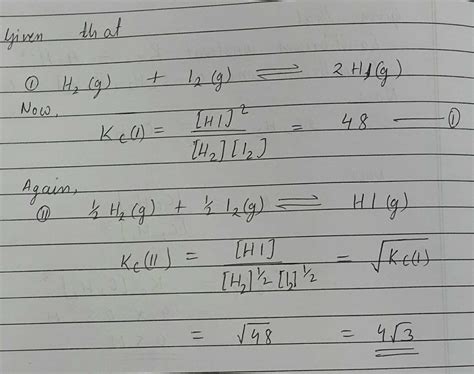 Given that
① H₂(g) + I₂(g) ⇌ 2HI(g)
Now,
Kc(I) = [HI]² / [H₂][I₂] = 48 —— ①
Again,
② ½ H₂(g) + ½ I₂(g) ⇌ HI(g)
Kc(II) = [HI] / [H₂]^½ [I₂]^½ = √Kc(I)
= √48 = 4√3